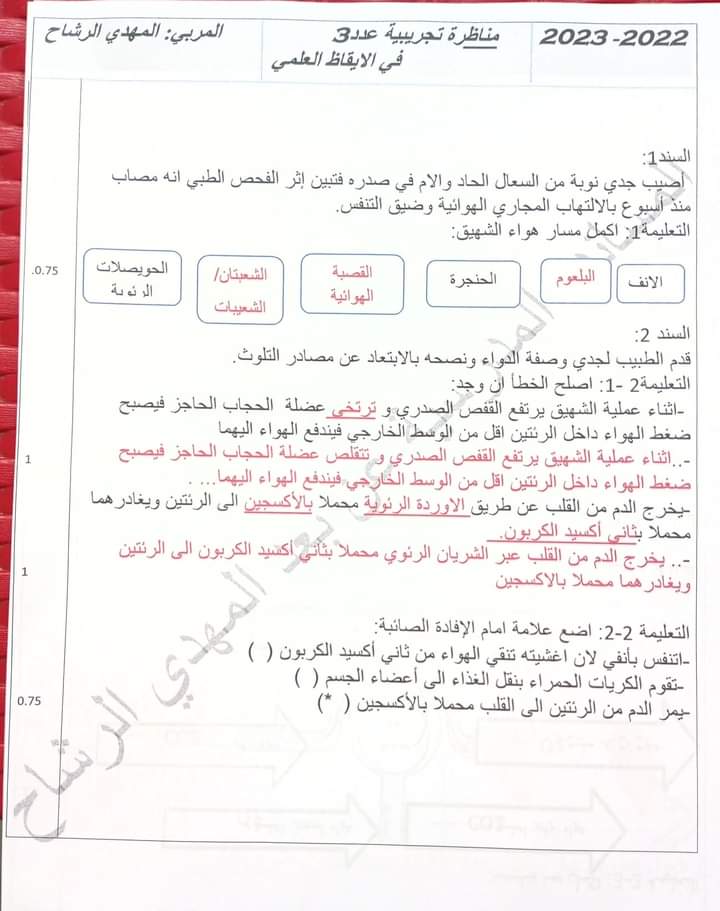 المربي: المهدي الرشاح
مناظرة تجريبية عدد3
في الايقاظ العلمي
2023-2022
السند1:
أصيب جدي نوبة من السعال الحاد والام في صدره فتبين إثر الفحص الطبي انه مصاب
منذ أسبوع بالالتهاب المجاري الهوائية وضيق التنفس.
التعليمة1: اكمل مسار هواء الشهيق:
0.75.
الانف
البلعوم
الحنجرة
القصبة
الهوائية
الشعبتان/
الشعيبات
الحويصلات
الرئوية
السند 2:
قدم الطبيب لجدي وصفة الدواء ونصحه بالابتعاد عن مصادر التلوث.
التعليمة2 -1: اصلح الخطأ ان وجد:
-اثناء عملية الشهيق يرتفع القفص الصدري و ترتخي عضلة الحجاب الحاجز فيصبح
ضغط الهواء داخل الرئتين اقل من الوسط الخارجي فيندفع الهواء اليهما
1
-..اثناء عملية الشهيق يرتفع القفص الصدري و تتقلص عضلة الحجاب الحاجز فيصبح
ضغط الهواء داخل الرئتين اقل من الوسط الخارجي فيندفع الهواء اليهما... .
-يخرج الدم من القلب عن طريق الاوردة الرئوية محملا بالأكسجين الى الرئتين ويغادرهما
محملا بثاني أكسيد الكربون.
-.. يخرج الدم من القلب عبر الشريان الرئوي محملا بثاني أكسيد الكربون الى الرئتين
1
ويغادرهما محملا بالاكسجين
التعليمة 2-2: اضع علامة امام الإفادة الصائبة:
-اتنفس بأنفي لان اغشيته تنقي الهواء من ثاني أكسيد الكربون ( )
-تقوم الكريات الحمراء بنقل الغذاء الى أعضاء الجسم ( )
0.75
-يمر الدم من الرئتين الى القلب محملا بالأكسجين ( *)
المدرسية عن بعد المهدي الرشاح